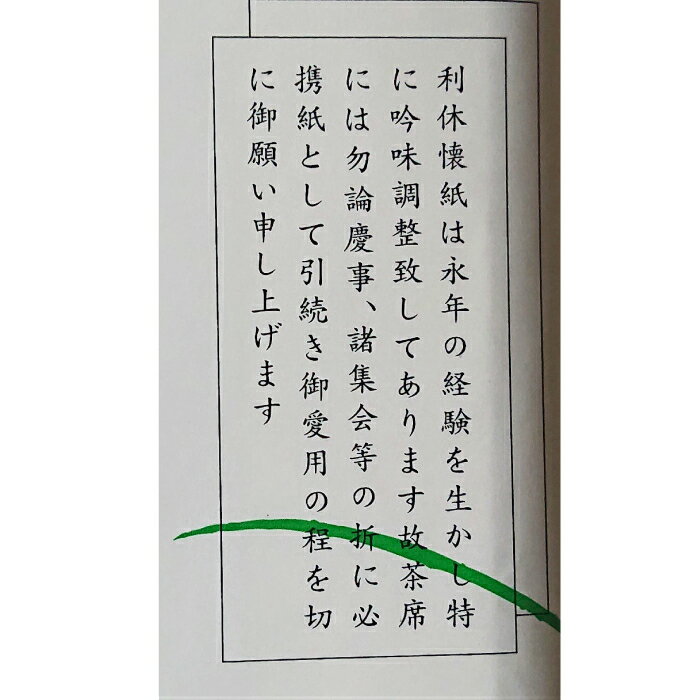 利休懐紙は永年の経験を生かし特
に吟味調整致してあります故茶席
には勿論慶事、諸集会等の折に必
携紙として引続き御愛用の程を切
に御願い申し上げます